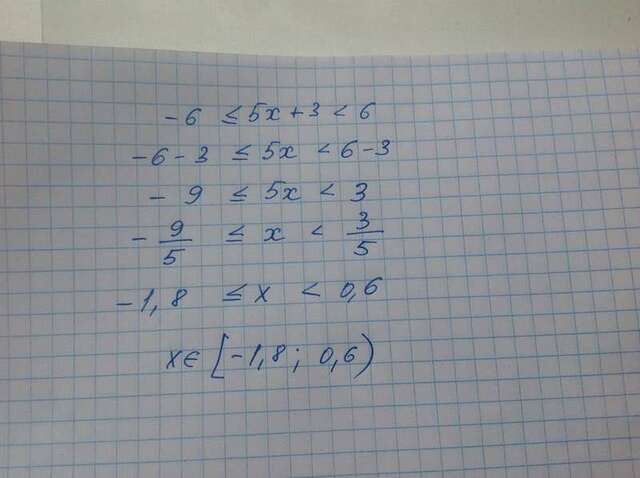 -6 ≤ 5x + 3 < 6
-6 - 3 ≤ 5x < 6 - 3
- 9 ≤ 5x < 3
- 9/5 ≤ x < 3/5
-1,8 ≤ x < 0,6
x ∈ [-1,8; 0,6)